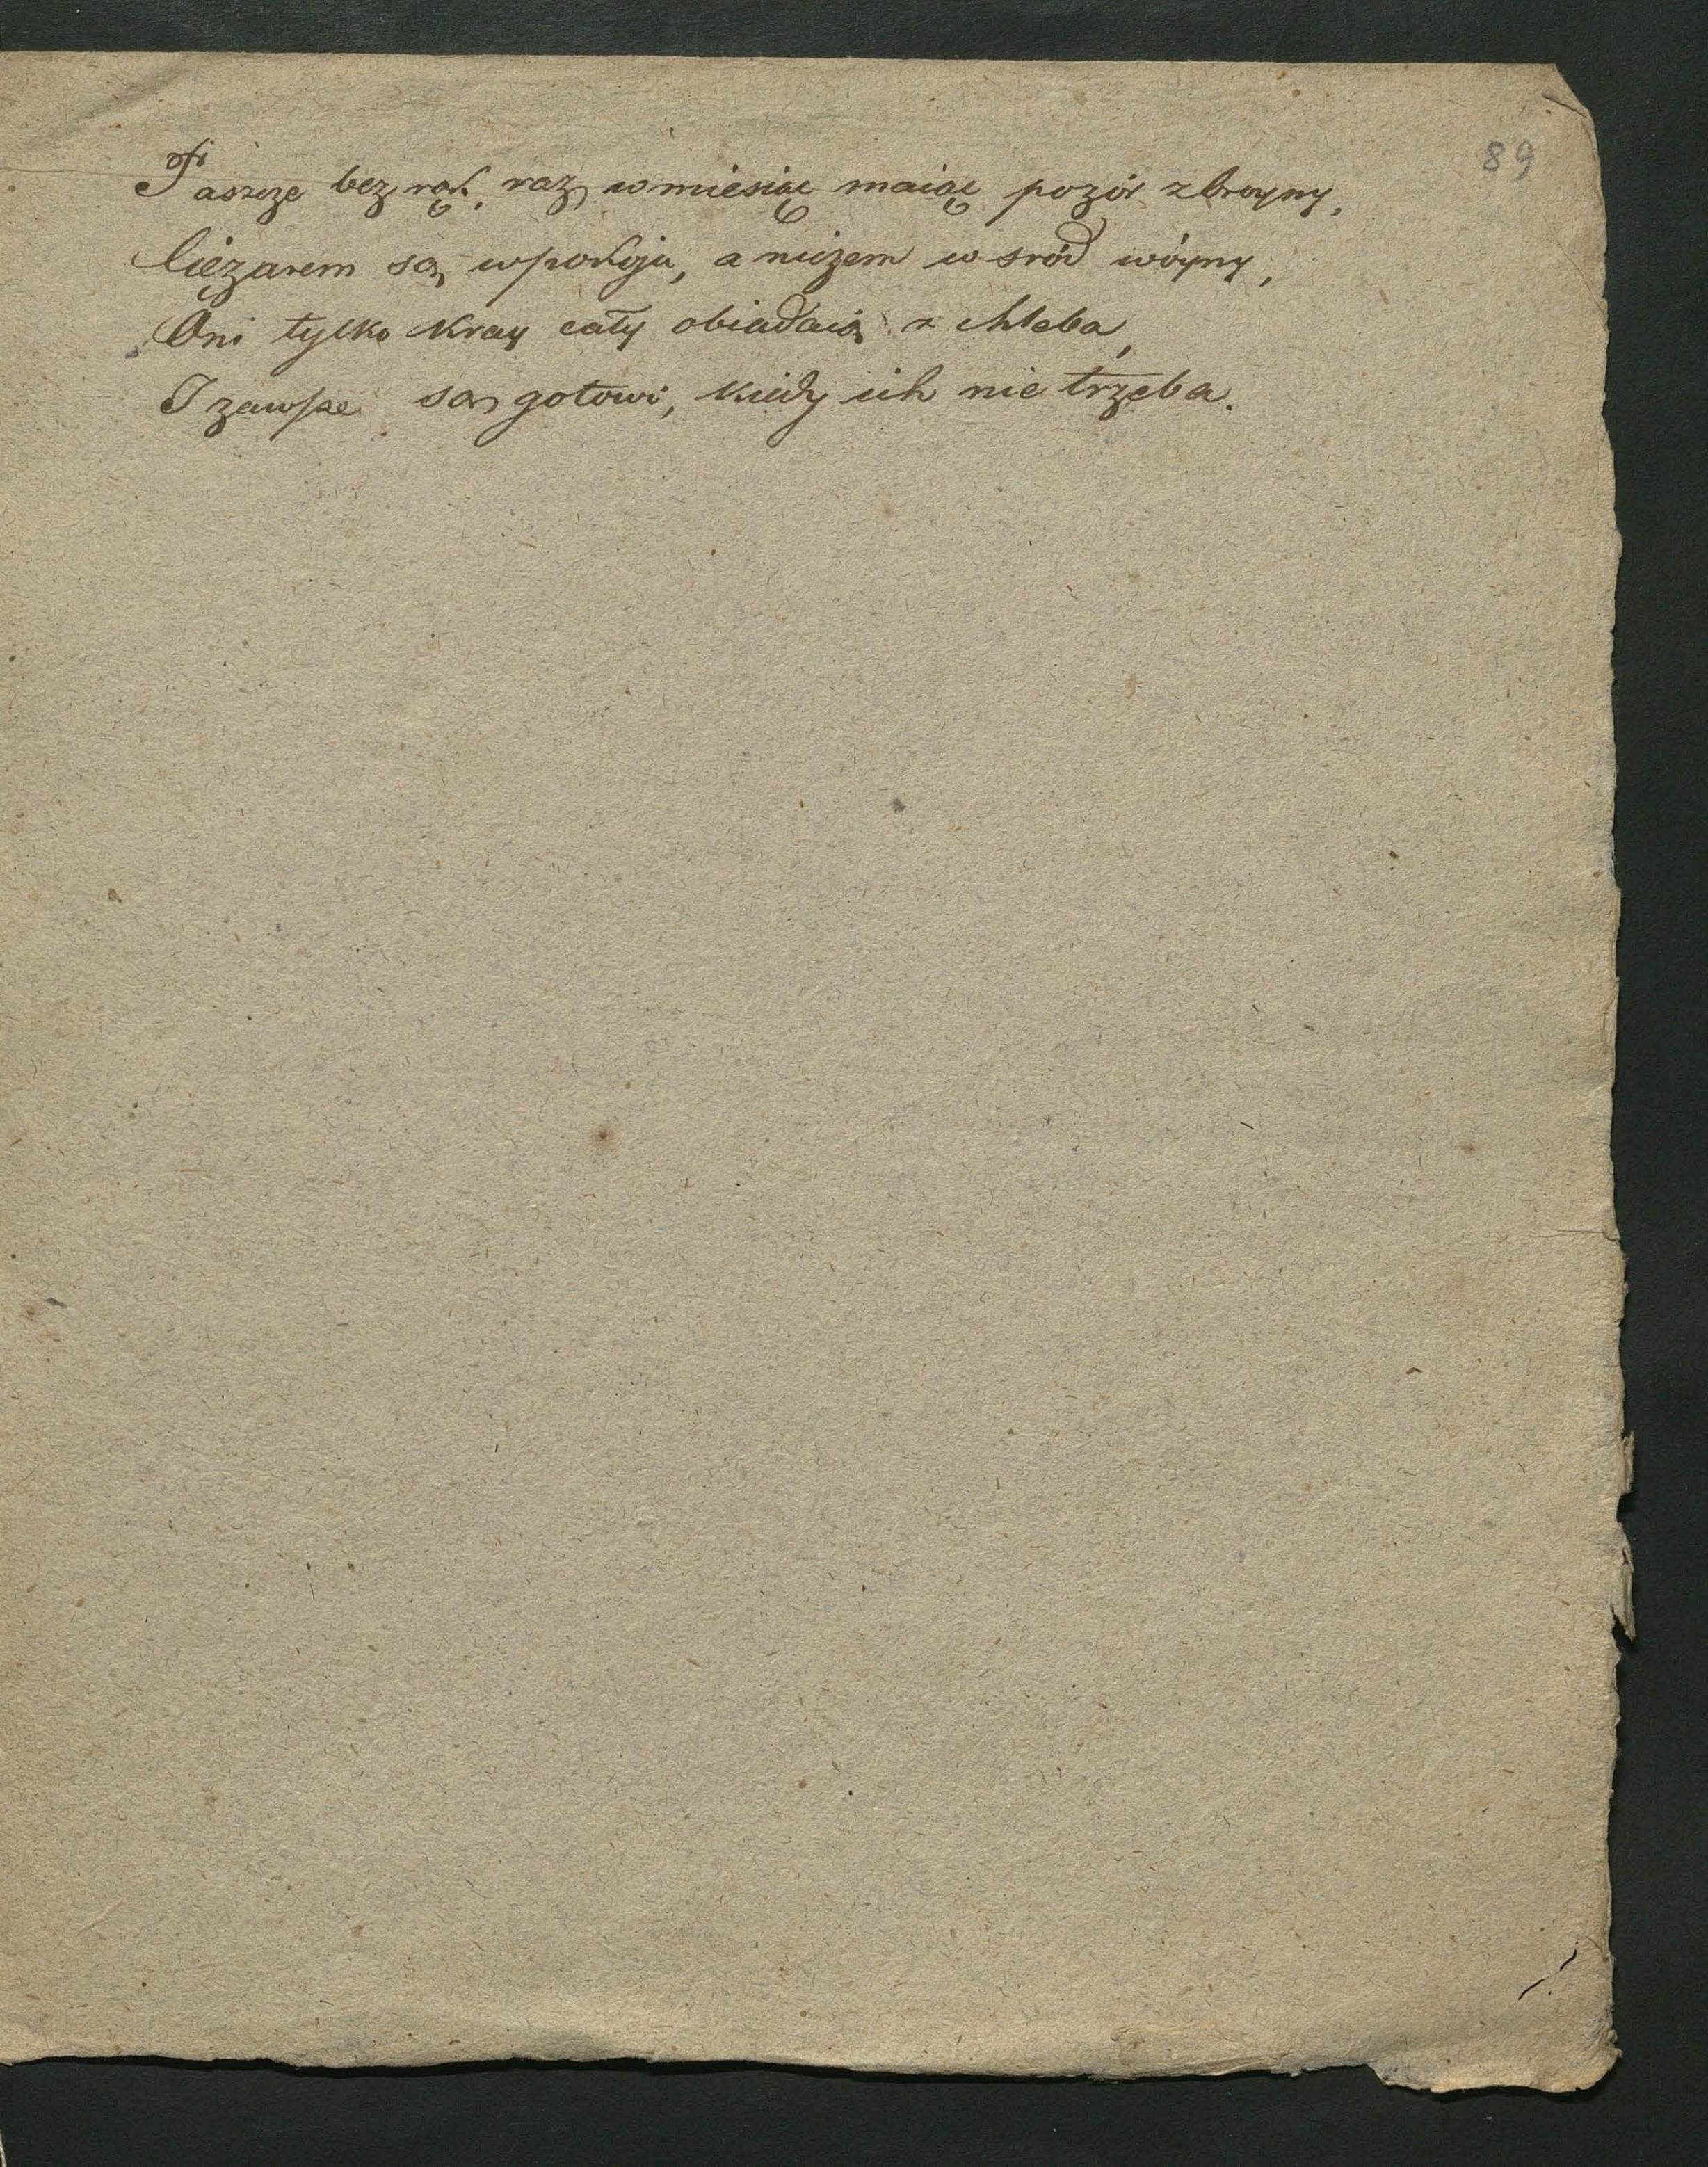 89
Paszcze bez rąk, raz w miesiąc maiąc pozór zbroyny,
Ciężarem są w pokoju, a niczem w sród wóyny,
Oni tylko kray cały obiadaią z chleba,
I zawsze są gotowi, kiedy ich nie trzeba.